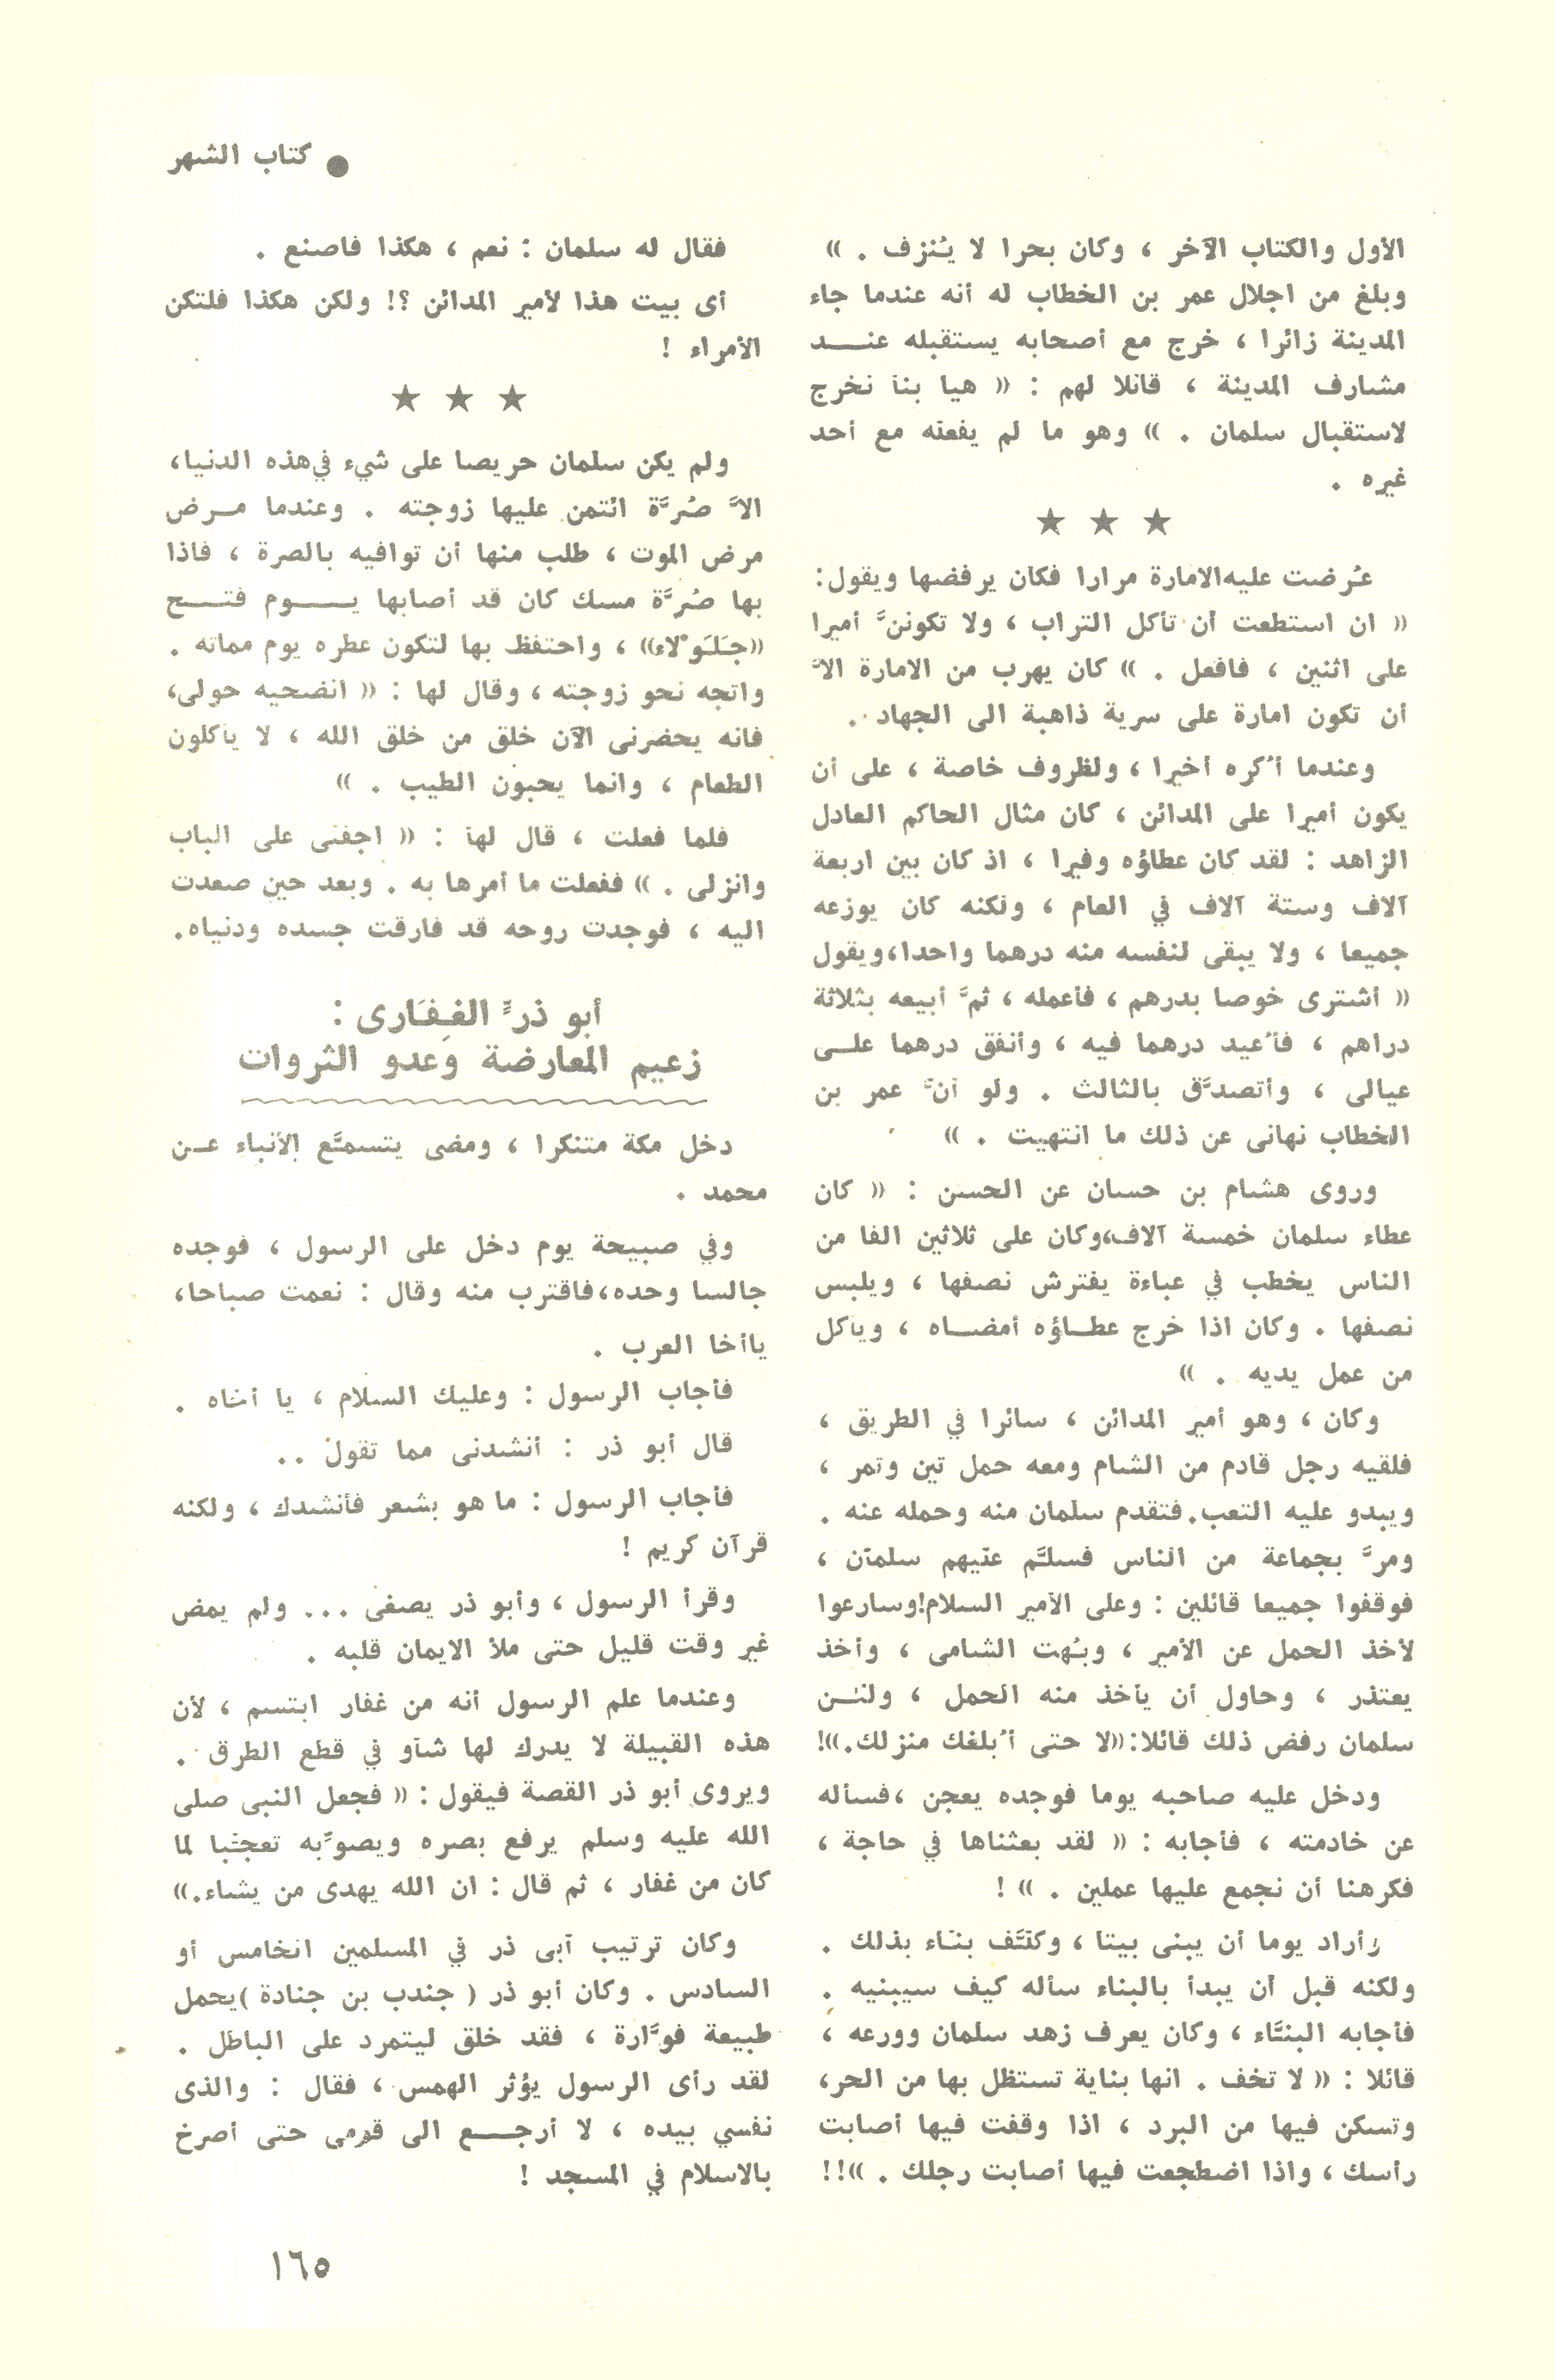 ● كتاب الشهر
الأول والكتاب الآخر ، وكان بحرا لا يُنزف . »
وبلغ من اجلال عمر بن الخطاب له أنه عندما جاء
المدينة زائرا ، خرج مع أصحابه يستقبله عنـــد
مشارف المدينة ، قائلا لهم : « هيا بنا نخرج
لاستقبال سلمان . » وهو ما لم يفعله مع أحد
غيره .
★ ★ ★
عُرضت عليه الامارة مرارا فكان يرفضها ويقول:
« ان استطعت أن تأكل التراب ، ولا تكوننَّ أميرا
على اثنين ، فافعل . » كان يهرب من الامارة الاَّ
أن تكون امارة على سرية ذاهبة الى الجهاد .
وعندما أُكره أخيرا ، ولظروف خاصة ، على أن
يكون أميرا على المدائن ، كان مثال الحاكم العادل
الزاهد : لقد كان عطاؤه وفيرا ، اذ كان بين اربعة
آلاف وستة آلاف في العام ، ولكنه كان يوزعه
جميعا ، ولا يبقى لنفسه منه درهما واحدا،ويقول
« أشترى خوصا بدرهم ، فأعمله ، ثمَّ أبيعه بثلاثة
دراهم ، فأُعيد درهما فيه ، وأنفق درهما علــى
عيالى ، وأتصدَّق بالثالث . ولو أنَّ عمر بن
الخطاب نهانى عن ذلك ما انتهيت . »
وروى هشام بن حسان عن الحسن : « كان
عطاء سلمان خمسة آلاف،وكان على ثلاثين الفا من
الناس يخطب في عباءة يفترش نصفها ، ويلبس
نصفها . وكان اذا خرج عطــاؤه أمضــاه ، ويأكل
من عمل يديه . »
وكان ، وهو أمير المدائن ، سائرا في الطريق ،
فلقيه رجل قادم من الشام ومعه حمل تين وتمر ،
ويبدو عليه التعب.فتقدم سلمان منه وحمله عنه .
ومرَّ بجماعة من الناس فسلَّم عليهم سلمان ،
فوقفوا جميعا قائلين : وعلى الأمير السلام!وسارعوا
لأخذ الحمل عن الأمير ، وبُهت الشامى ، وأخذ
يعتذر ، وحاول أن يأخذ منه الحمل ، ولكــن
سلمان رفض ذلك قائلا:«لا حتى أُبلغك منزلك.»!
ودخل عليه صاحبه يوما فوجده يعجن ،فسأله
عن خادمته ، فأجابه : « لقد بعثناها في حاجة ،
فكرهنا أن نجمع عليها عملين . » !
وأراد يوما أن يبنى بيتا ، وكلَّف بنـّاء بذلك .
ولكنه قبل أن يبدأ بالبناء سأله كيف سيبنيه .
فأجابه البنَّاء ، وكان يعرف زهد سلمان وورعه ،
قائلا : « لا تخف . انها بناية تستظل بها من الحر،
وتسكن فيها من البرد ، اذا وقفت فيها أصابت
رأسك ، واذا اضطجعت فيها أصابت رجلك . »!!
فقال له سلمان : نعم ، هكذا فاصنع .
أى بيت هذا لأمير المدائن ؟! ولكن هكذا فلتكن
الأمراء !
★ ★ ★
ولم يكن سلمان حريصا على شيء في هذه الدنيا،
الاَّ صُرَّة ائتمن عليها زوجته . وعندما مـرض
مرض الموت ، طلب منها أن توافيه بالصرة ، فاذا
بها صُرَّة مسك كان قد أصابها يـــوم فتــح
«جَلَوْلاء» ، واحتفظ بها لتكون عطره يوم مماته .
واتجه نحو زوجته ، وقال لها : « انضحيه حولى،
فانه يحضرنى الآن خلق من خلق الله ، لا يأكلون
الطعام ، وانما يحبون الطيب . »
فلما فعلت ، قال لها : « اجفئى على الباب
وانزلى . » ففعلت ما أمرها به . وبعد حين صعدت
اليه ، فوجدت روحه قد فارقت جسده ودنياه.
أبو ذرٍّ الغِفَارى :
زعيم المعارضة وَعدو الثروات
دخل مكة متنكرا ، ومضى يتسمَّع الأنباء عــن
محمد .
وفي صبيحة يوم دخل على الرسول ، فوجده
جالسا وحده،فاقترب منه وقال : نعمت صباحا،
ياأخا العرب .
فأجاب الرسول : وعليك السلام ، يا أخاه .
قال أبو ذر : أنشدنى مما تقول ..
فأجاب الرسول : ما هو بشعر فأنشدك ، ولكنه
قرآن كريم !
وقرأ الرسول ، وأبو ذر يصغى ... ولم يمض
غير وقت قليل حتى ملأ الايمان قلبه .
وعندما علم الرسول أنه من غفار ابتسم ، لأن
هذه القبيلة لا يدرك لها شأو في قطع الطرق .
ويروى أبو ذر القصة فيقول : « فجعل النبى صلى
الله عليه وسلم يرفع بصره ويصوِّبه تعجّبا لما
كان من غفار ، ثم قال : ان الله يهدى من يشاء.»
وكان ترتيب أبى ذر في المسلمين الخامس أو
السادس . وكان أبو ذر ( جندب بن جنادة )يحمل
طبيعة فوَّارة ، فقد خلق ليتمرد على الباطل .
لقد رأى الرسول يؤثر الهمس ، فقال : والذى
نفسي بيده ، لا أرجــع الى قومى حتى أصرخ
بالاسلام في المسجد !
١٦٥